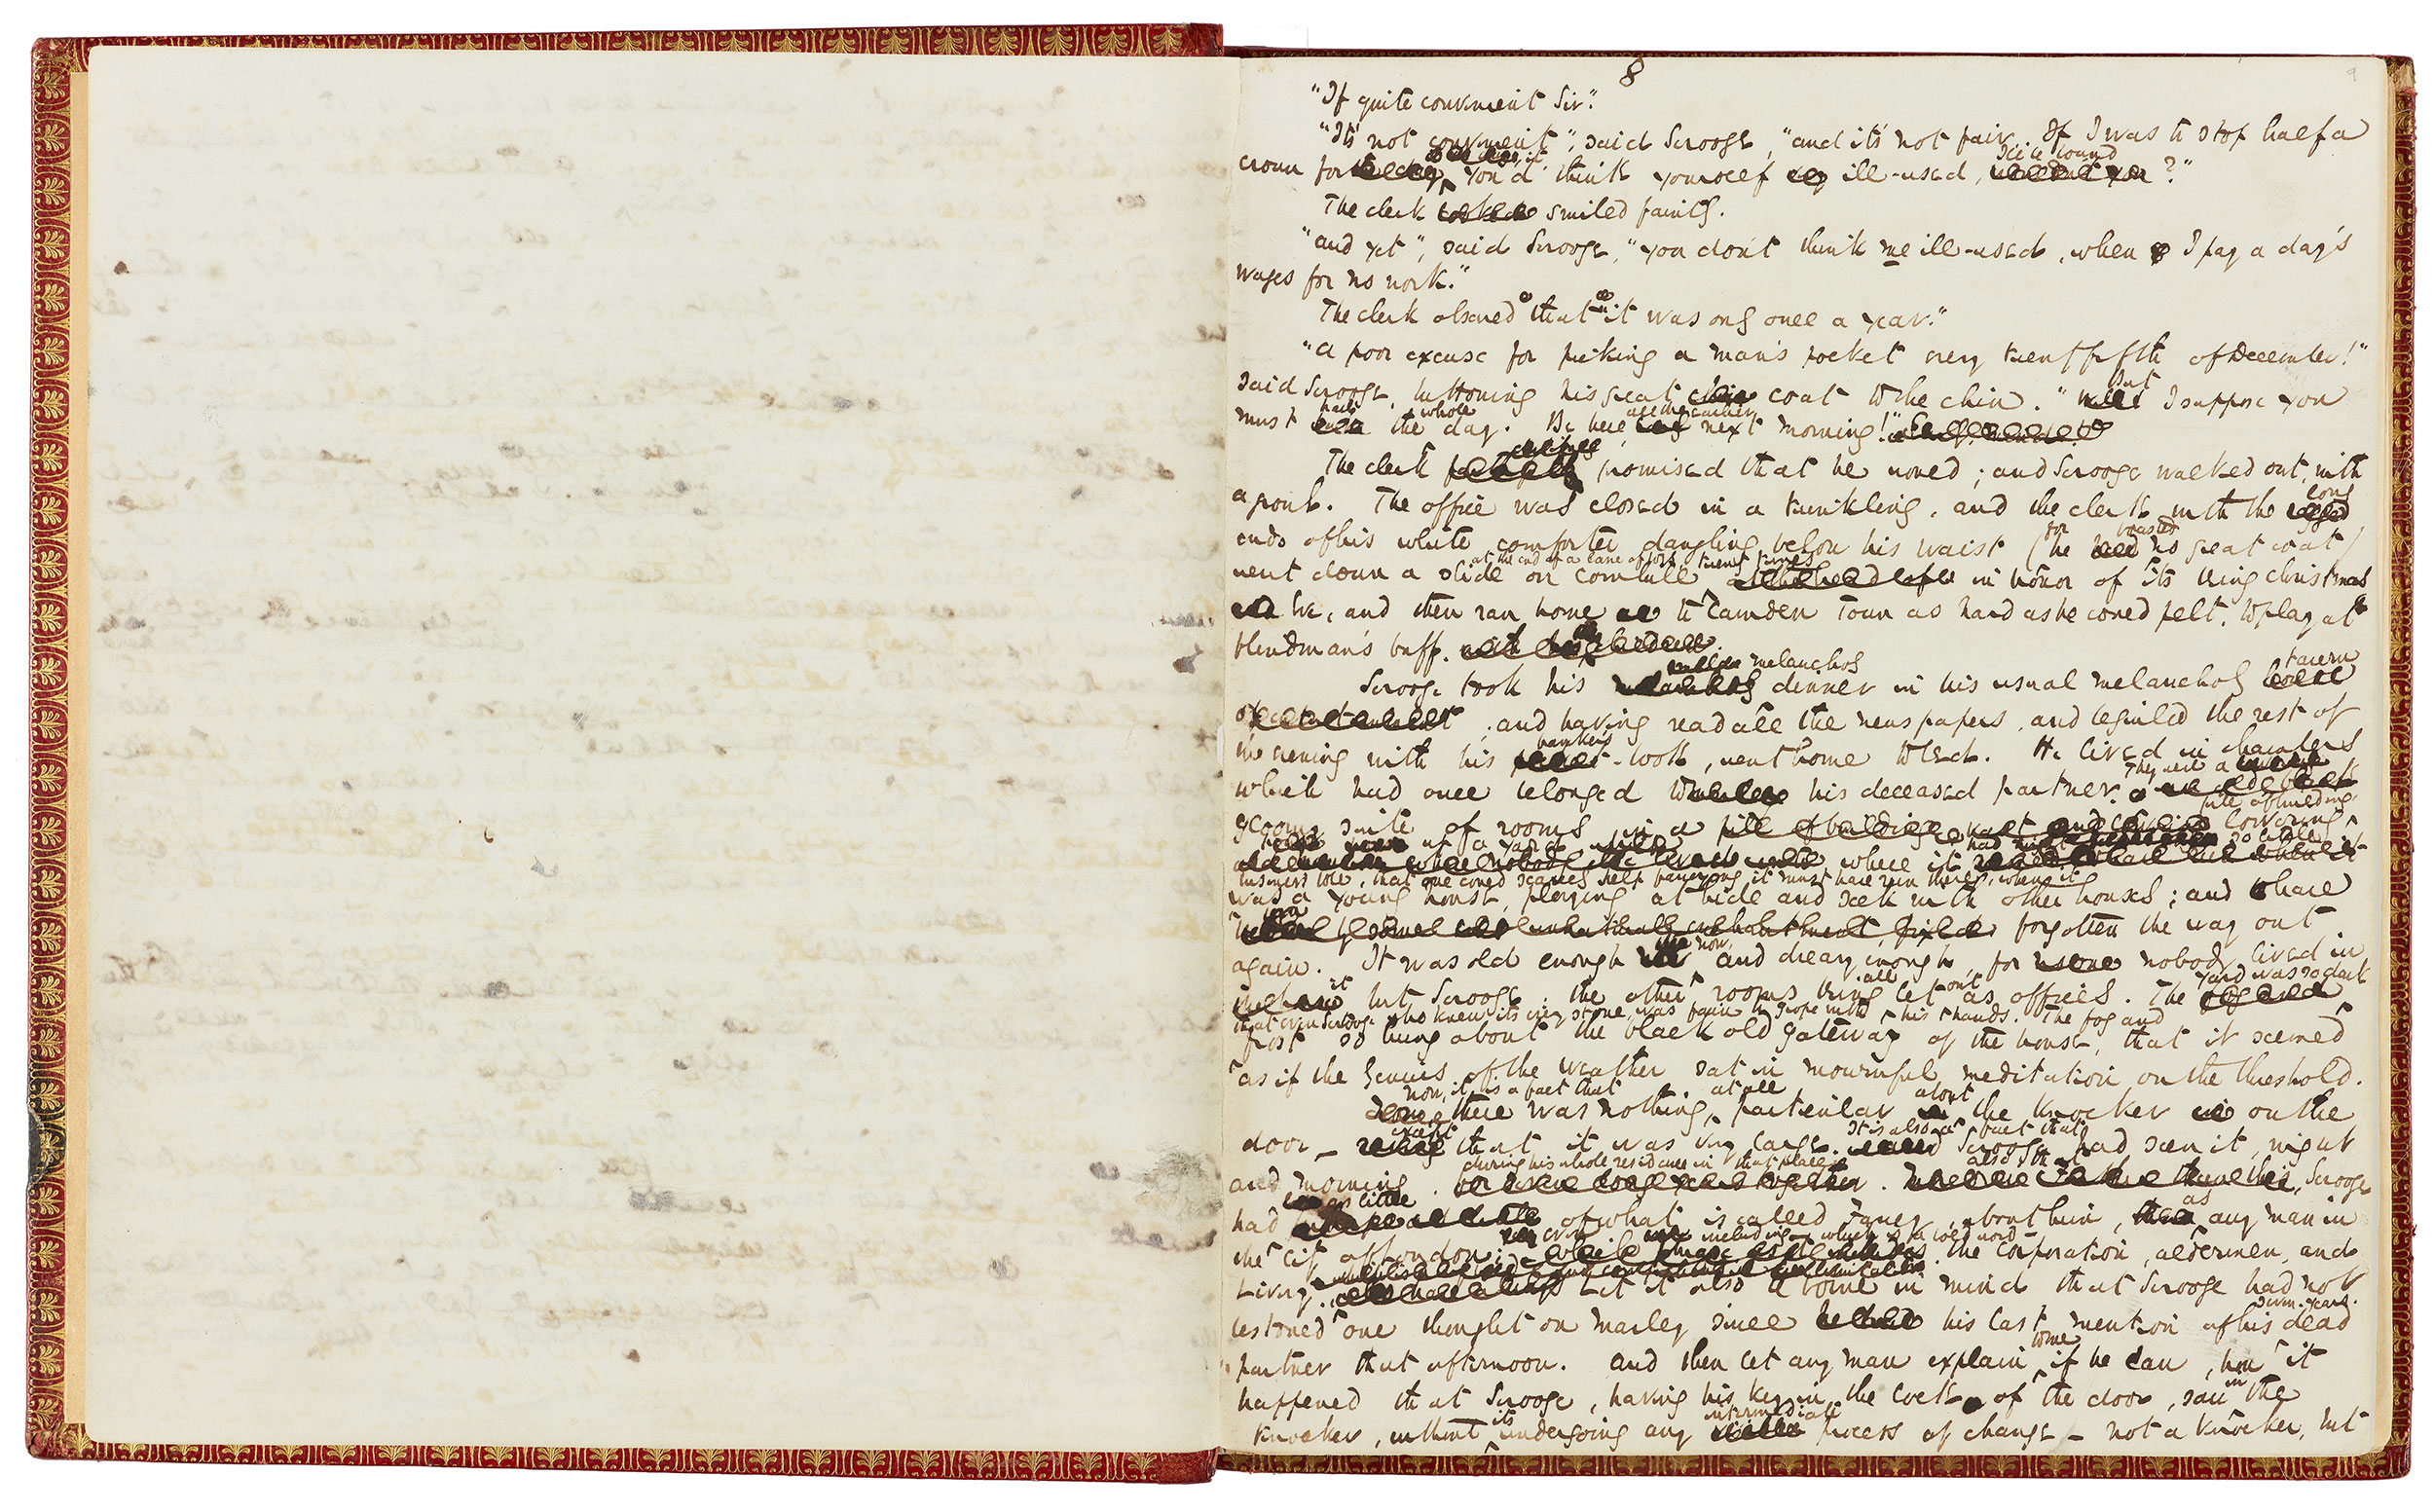 8
9
"If quite convenient Sir."
"It's not convenient", said Scrooge, "and its not fair. If I was to stop half a
crown for it, you'd think yourself ill-used, I'll be bound?"
The clerk smiled faintly.
"and yet", said Scrooge, "you don't think me ill-used, when I pay a day's
wages for no work."
The clerk observed that it was only once a year."
"a poor excuse for picking a man's pocket every twenty fifth of December!"
said Scrooge, buttoning his great coat to the chin. "But I suppose you
must have the whole day. Be here all the earlier next morning!"
The clerk promised that he would; and Scrooge walked out, with
a growl. The office was closed in a twinkling, and the clerk with the long
ends of his white comforter dangling below his waist (for he boasted no great coat)
went down a slide on Cornhill at the end of a lane of boys, twenty times in honor of its being Christmas
Eve, and then ran home to Camden Town as hard as he could pelt, to play at
blindman's buff.
Scrooge took his melancholy dinner in his usual melancholy tavern
; and having read all the newspapers, and beguiled the rest of
the evening with his banker's-book, went home to bed. He lived in chambers
which had once belonged to his deceased partner. They were a
gloomy suite of rooms in a lowering pile of building
up a yard where it had so little
business to be, that one could scarcely help fancying it must have run there, when it
was a young house, playing at hide and seek with other houses; and have
forgotten the way out
again. It was old enough now, and dreary enough, for nobody lived in
it but Scrooge, the other rooms being all let out as offices. The yard was so dark
that even Scrooge who knew its every stone, was fain to grope with his hands. The fog and
frost so hung about the black old gateway of the house, that it seemed
as if the Genius of the Weather sat in mournful meditation on the threshold.
Now, it is a fact that there was nothing at all particular about the knocker on the
door – except that it was very large. It is also a fact that Scrooge had seen it, night
and morning during his whole residence in that place. also that Scrooge
had as little of what is called Fancy about him, as any man in
the City of London; even including – which is a bold word – the Corporation, aldermen, and
Livery. Let it also be borne in mind that Scrooge had not
bestowed one thought on Marley since his last mention of his seven-years dead
partner that afternoon. and then let any man explain to me, if he can, how it
happened that Scrooge, having his key in the lock of the door, saw in the
knocker, without its undergoing any intermediate process of change – not a knocker, but